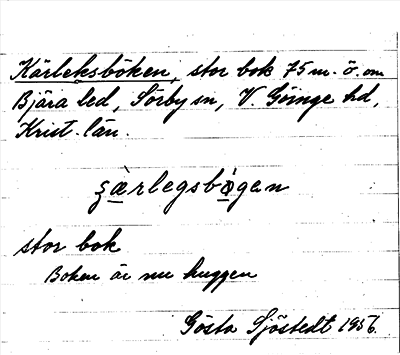 Kärleksboken, stor bok 75 m. ö. om
Bjära led, Sörby sn, V. Göinge hd,
Krist. län.
ʒærlegsbogen
stor bok
Boken är nu huggen
Gösta Sjöstedt 1956.